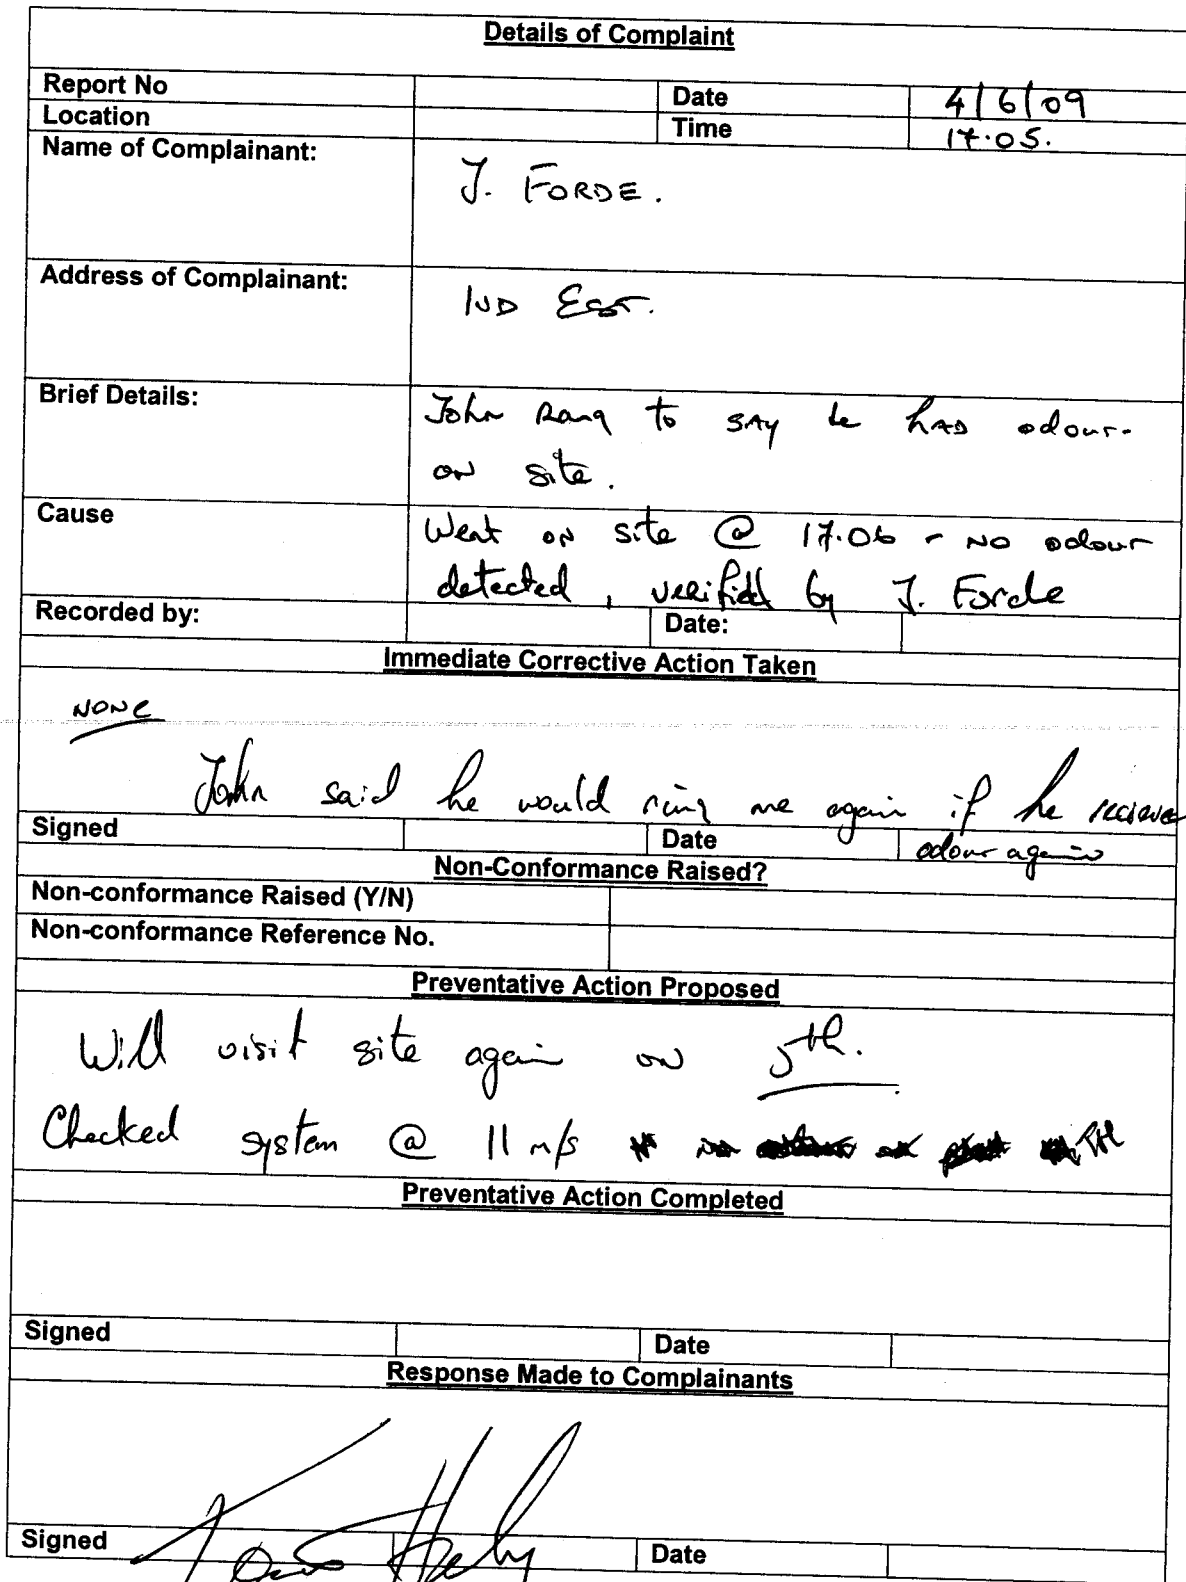 Details of Complaint
Report No Date 4/6/09
Location Time 17.05.
Name of Complainant: J. FORDE.
Address of Complainant: IND EST.
Brief Details: John Rang to SAY he HAD odour
on site.
Cause Went on site @ 17.06 - NO odour
detected, verified by J. Forde
Recorded by: Date:
Immediate Corrective Action Taken
NONE
John said he would ring me again if he
Signed Date odour again
Non-Conformance Raised?
Non-conformance Raised (Y/N)
Non-conformance Reference No.
Preventative Action Proposed
Will visit site again on 5th.
Checked system @ 11 m/s
Preventative Action Completed
Signed Date
Response Made to Complainants
Signed Date